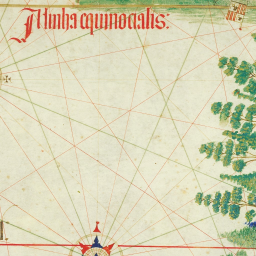 A linha equinocialis: